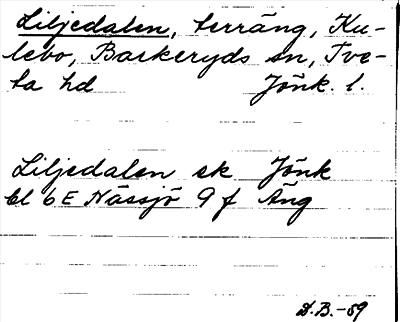 Liljedalen, terräng, Ku-
lebo, Barkeryds sn, Tve-
ta hd Jönk. l.
Liljedalen ek Jönk
bl 6E Nässjö 9f Äng
D.B.-59